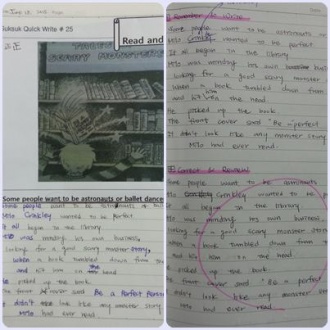 Jukjuk Quick Write # 25
Read and
SCARY MONSTERS
Some people want to be astronauts or ballet dance
Some people want to be astronauts or
Milo Crinkley wanted to be perfect.
It all began in the library.
He was minding his own business,
looking for a good scary monster story,
when a book tumbled down from the
and hit him on the head.
He picked up the book.
The front cover said Be a Perfect Person
It didn't look like any monster story
Milo had ever read.
Remember to Write
Some people want to be astronauts or
Milo Crinkley wanted to be perfect
It all began in the library
Milo was minding his own business
looking for a good scary monster
When a book tumbled down from
and hit him the head.
He picked up the book
The front cover said "Be a perfect
It didn't look like any monster story
Milo had ever read.
Correct to Reread
Some people want to be astronauts
Milo Crinkley wanted to be
It all began in the library.
Milo was minding his own business
looking for a good scary monster
when a book tumbled down from
and hit him on the head
He picked up the book
The front cover said "Be a perfect
It didn't look like any monster story
Milo had ever read.